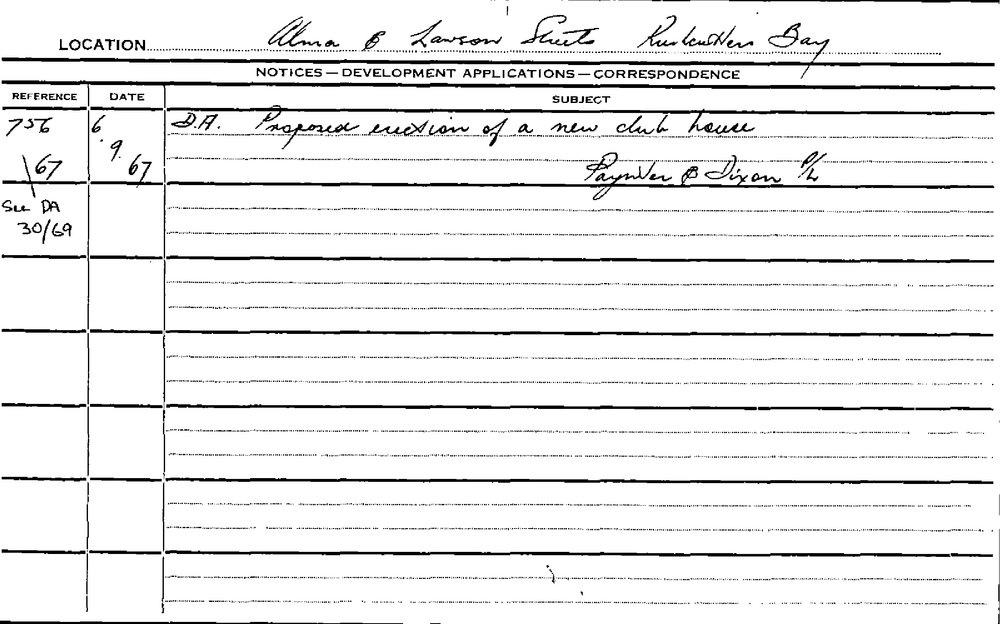 LOCATION Alma & Lawson Streets Rushcutters Bay
NOTICES — DEVELOPMENT APPLICATIONS — CORRESPONDENCE
REFERENCE DATE SUBJECT
756 6 D.A. Proposed erection of a new club house
9
\67 67 Paynter & Dixon P/L
See DA
30/69